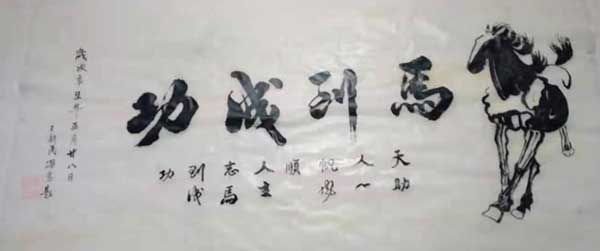 馬到成功
天助
人一
帆風
順
人立
志馬
到成
功
歲次辛丑年月廿八日